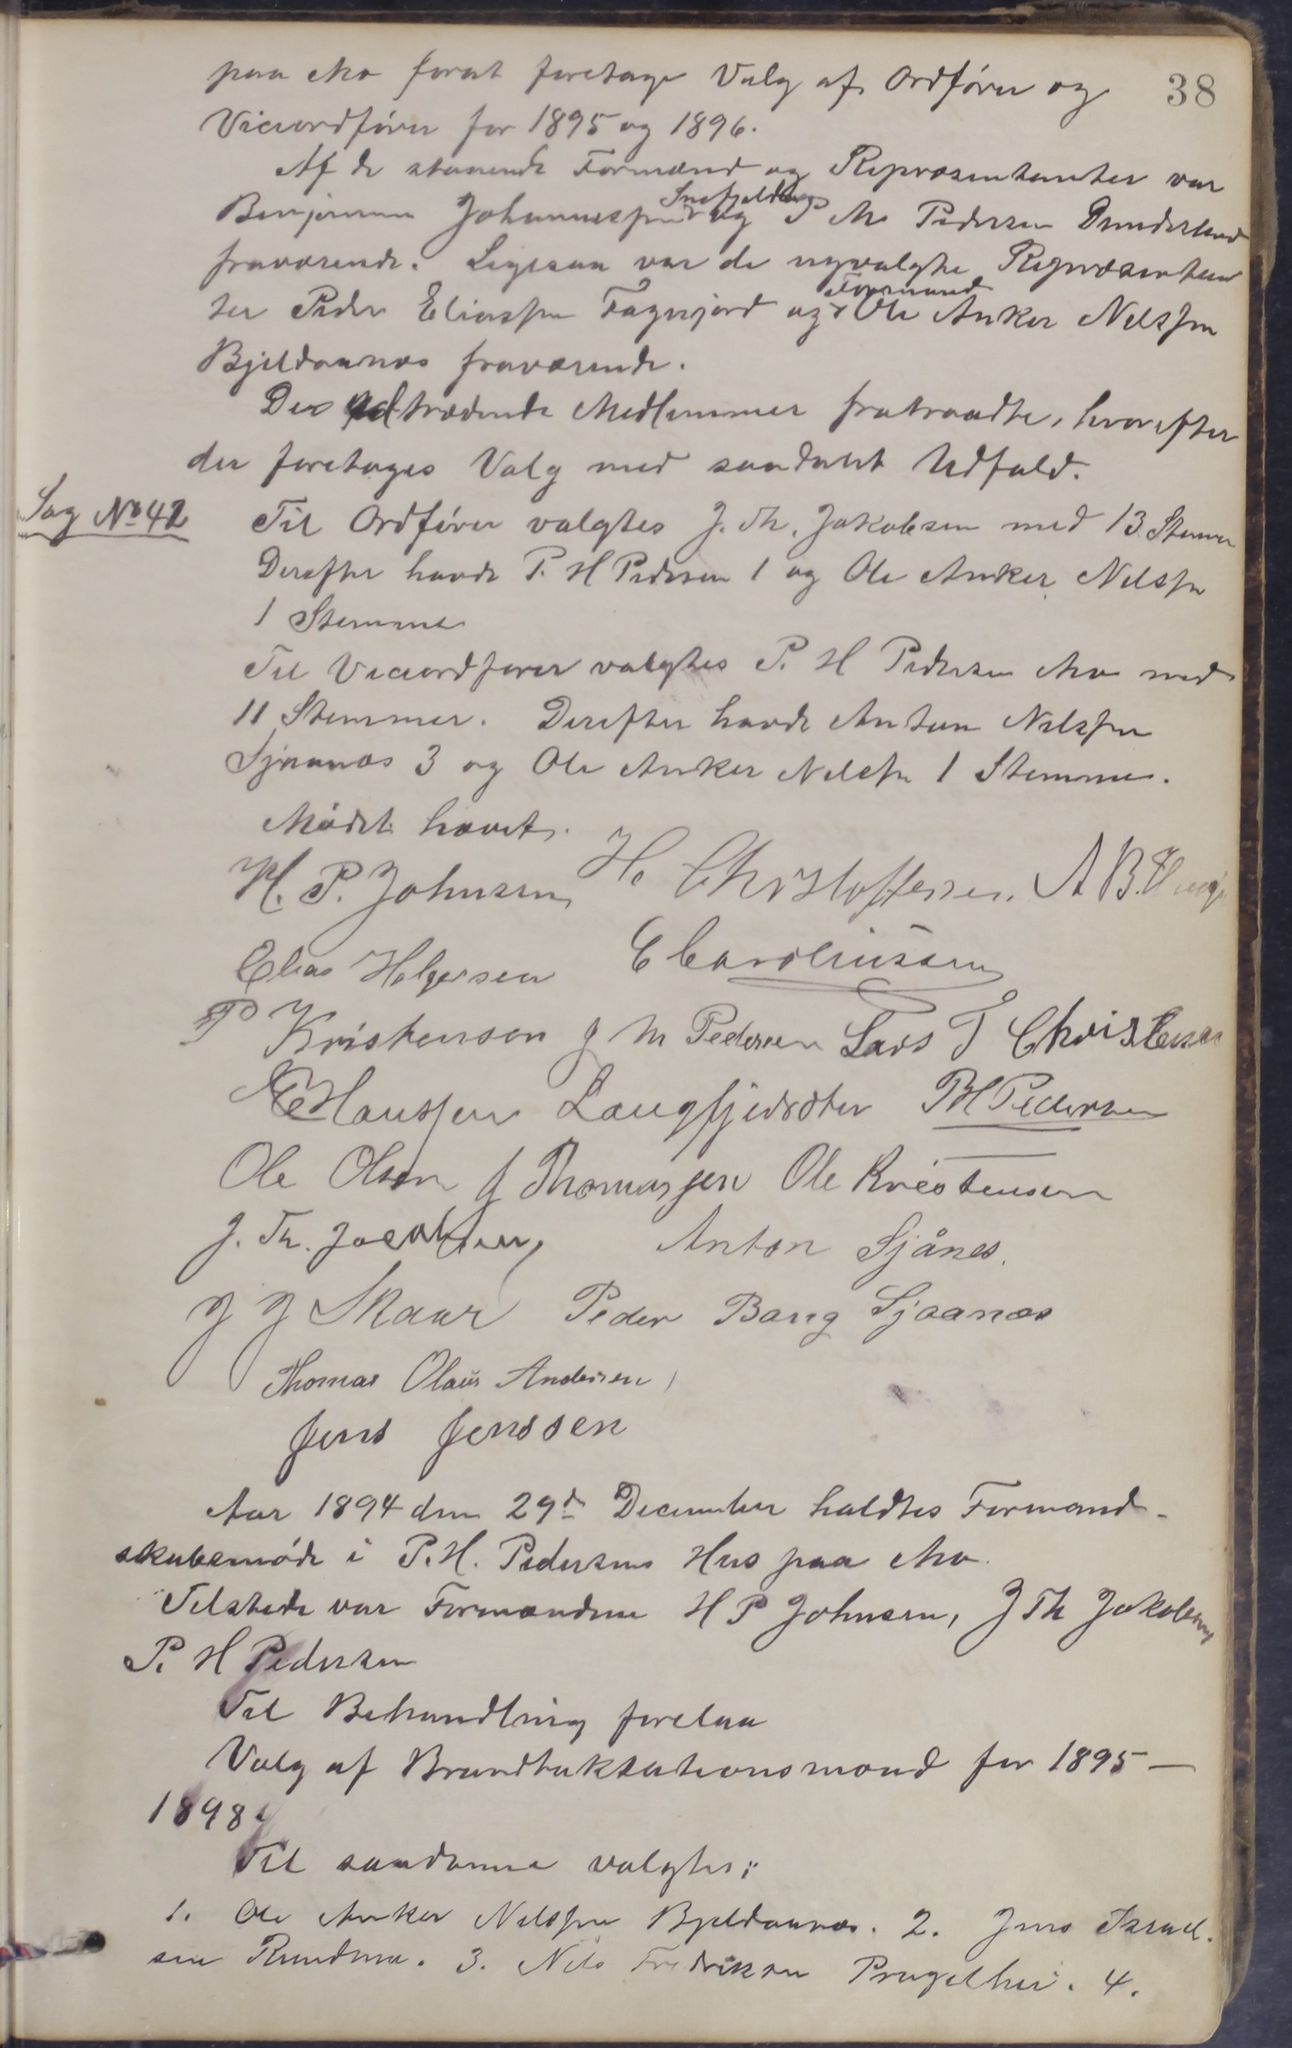 38
paa Mo forat foretage Valg af Ordfører og
Viceordfører for 1895 og 1896.
Af de staaende Formænd og Repræsentanter var
Snefjeldet
Benjamin Johannessen og P M Pedersen Dunderland
fraværende. Ligesaa var de nyvalgte Repræsentan
Formand
ter Peder Eliassen Fagerjord og Ole Anker Nilssen
Bjeldaanæs fraværende.
De udtrædende Medlemmer fratraadte, hvorefter
der foretoges Valg med saadant Udfald.
Sag No 42
Til Ordfører valgtes J. Th. Jakobsen med 13 Stemmer
Derefter havde P. H Pedersen 1 og Ole Anker Nilssen
1 Stemme
Til Viceordfører valgtes P. H Pedersen Mo med
11 Stemmer. Derefter havde Anton Nilssen
Sjaanæs 3 og Ole Anker Nilssen 1 Stemme.
Mødet hævet.
H. P. Johnsen H. Christoffersen. A B.
Elias Holgersen E Carolinssen
P Kristenson J M Pedersen Lars T Christensen
Hanssen Langfjeldter PH Pedersen
Ole Olsen J Thomassen Ole Kristensen
J. Th. Jacobsen, Anton Sjånes.
J J Skaar Peder Bang Sjaanæs
Thomas Olaus Andersen
Jens Jenssen
Aar 1894 den 29de December holdtes Formand-
skabsmøde i P. H. Pedersens Hus paa Mo
Tilstede var Formændene H P Johnsen, J Th Jakobsen
P. H Pedersen
Til Behandling forelaa
Valg af Brandtakstationsmænd for 1895 —
1898.
Til saadanne valgtes:
1. Ole Anker Nilssen Bjeldaanæs. 2. Jens Israel.
sen Rundmo. 3. Nils Fredriksen 4.